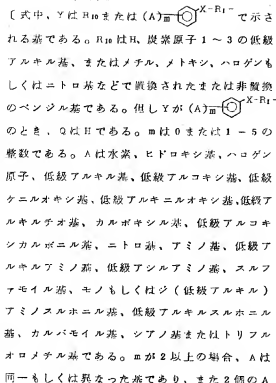 〔式中、YはR10または(A)m X-R1- で示さ
れる基である。R10はH、炭素原子1～3の低級
アルキル基、またはメチル、メトキシ、ハロゲンも
しくはニトロ基などで置換されたまたは非置換
のベンジル基である。但しYが(A)m X-R1-
のとき、QはHである。mは0または1-5の
整数である。Aは水素、ヒドロキシ基、ハロゲン
原子、低級アルキル基、低級アルコキシ基、低級
ケニルオキシ基、低級アルキニルオキシ基、低級ア
ルキルチオ基、カルボキシル基、低級アルコキ
シカルボニル基、ニトロ基、アミノ基、低級ア
ルキルアミノ基、低級アシルアミノ基、スルフ
ァモイル基、モノもしくはジ(低級アルキル)
アミノスルホニル基、低級アルキルスルホニル
基、カルバモイル基、シアノ基またはトリフル
オロメチル基である。mが2以上の場合、Aは
同一もしくは異なった基であり、また2個のA